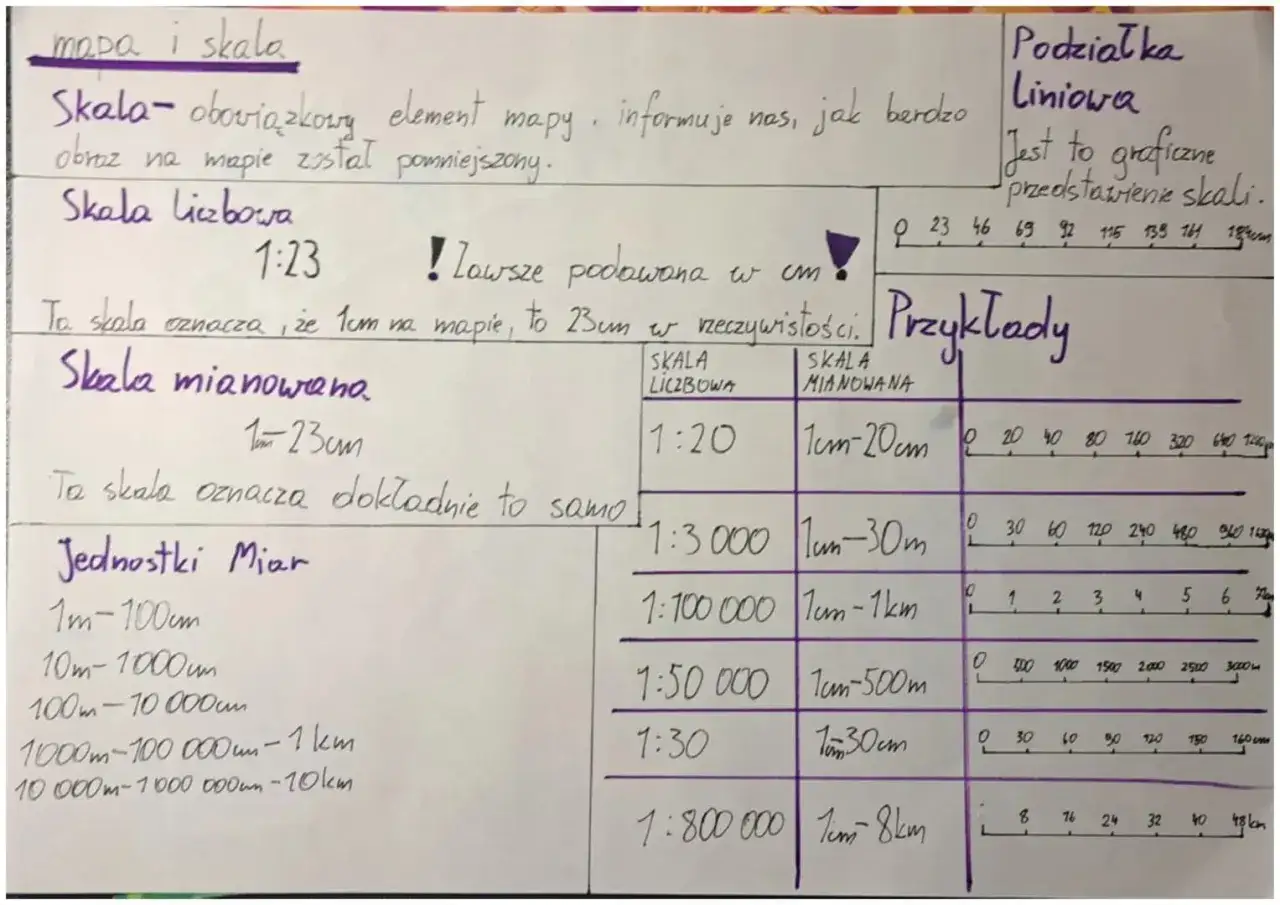 mapa i skala
Skala- obowiązkowy element mapy. informuje nas, jak bardzo
obraz na mapie został pomniejszony.
Podziałka
liniowa
Jest to graficzne
przedstawienie skali.
0 23 46 69 92 115 138 161 184cm
Skala liczbowa
1:23
! Zawsze podawana w cm !
Ta skala oznacza, że 1cm na mapie, to 23cm w rzeczywistości.
Skala mianowana
1cm-23cm
Ta skala oznacza dokładnie to samo
Jednostki Miar
1m-100cm
10m-1000cm
100m-10 000cm
1000m-100 000cm-1km
10 000m-1000 000cm-10km
Przykłady
SKALA LICZBOWA SKALA MIANOWANA
1:20 1cm-20cm 0 20 40 80 160 320 640
1:3 000 1cm-30m 0 30 60 120 240 480 960
1:100 000 1cm-1km 0 1 2 3 4 5 6 7km
1:50 000 1cm-500m 0 500 1000 1500 2000 2500 3000m
1:30 1cm-30cm 0 30 60 90 120 150 160cm
1:800 000 1cm-8km 8 16 24 32 40 48km